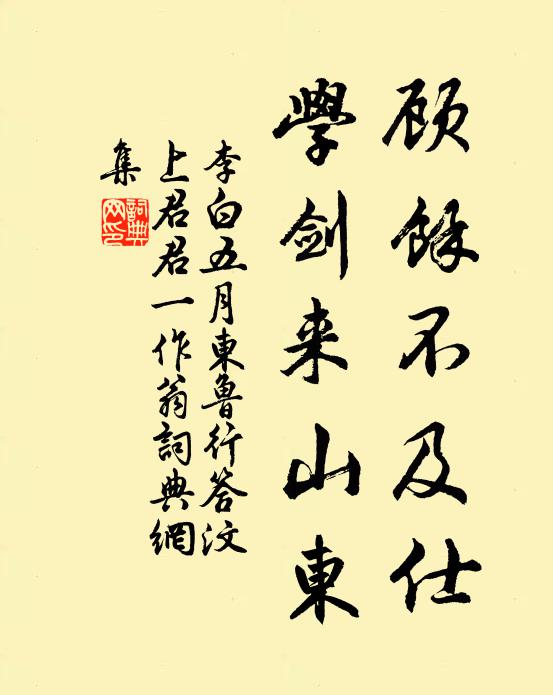 顾餘不及仕
學剑来山東
李白五月東魯行答汶
上君君一作翁詞典網
集
詞典網印